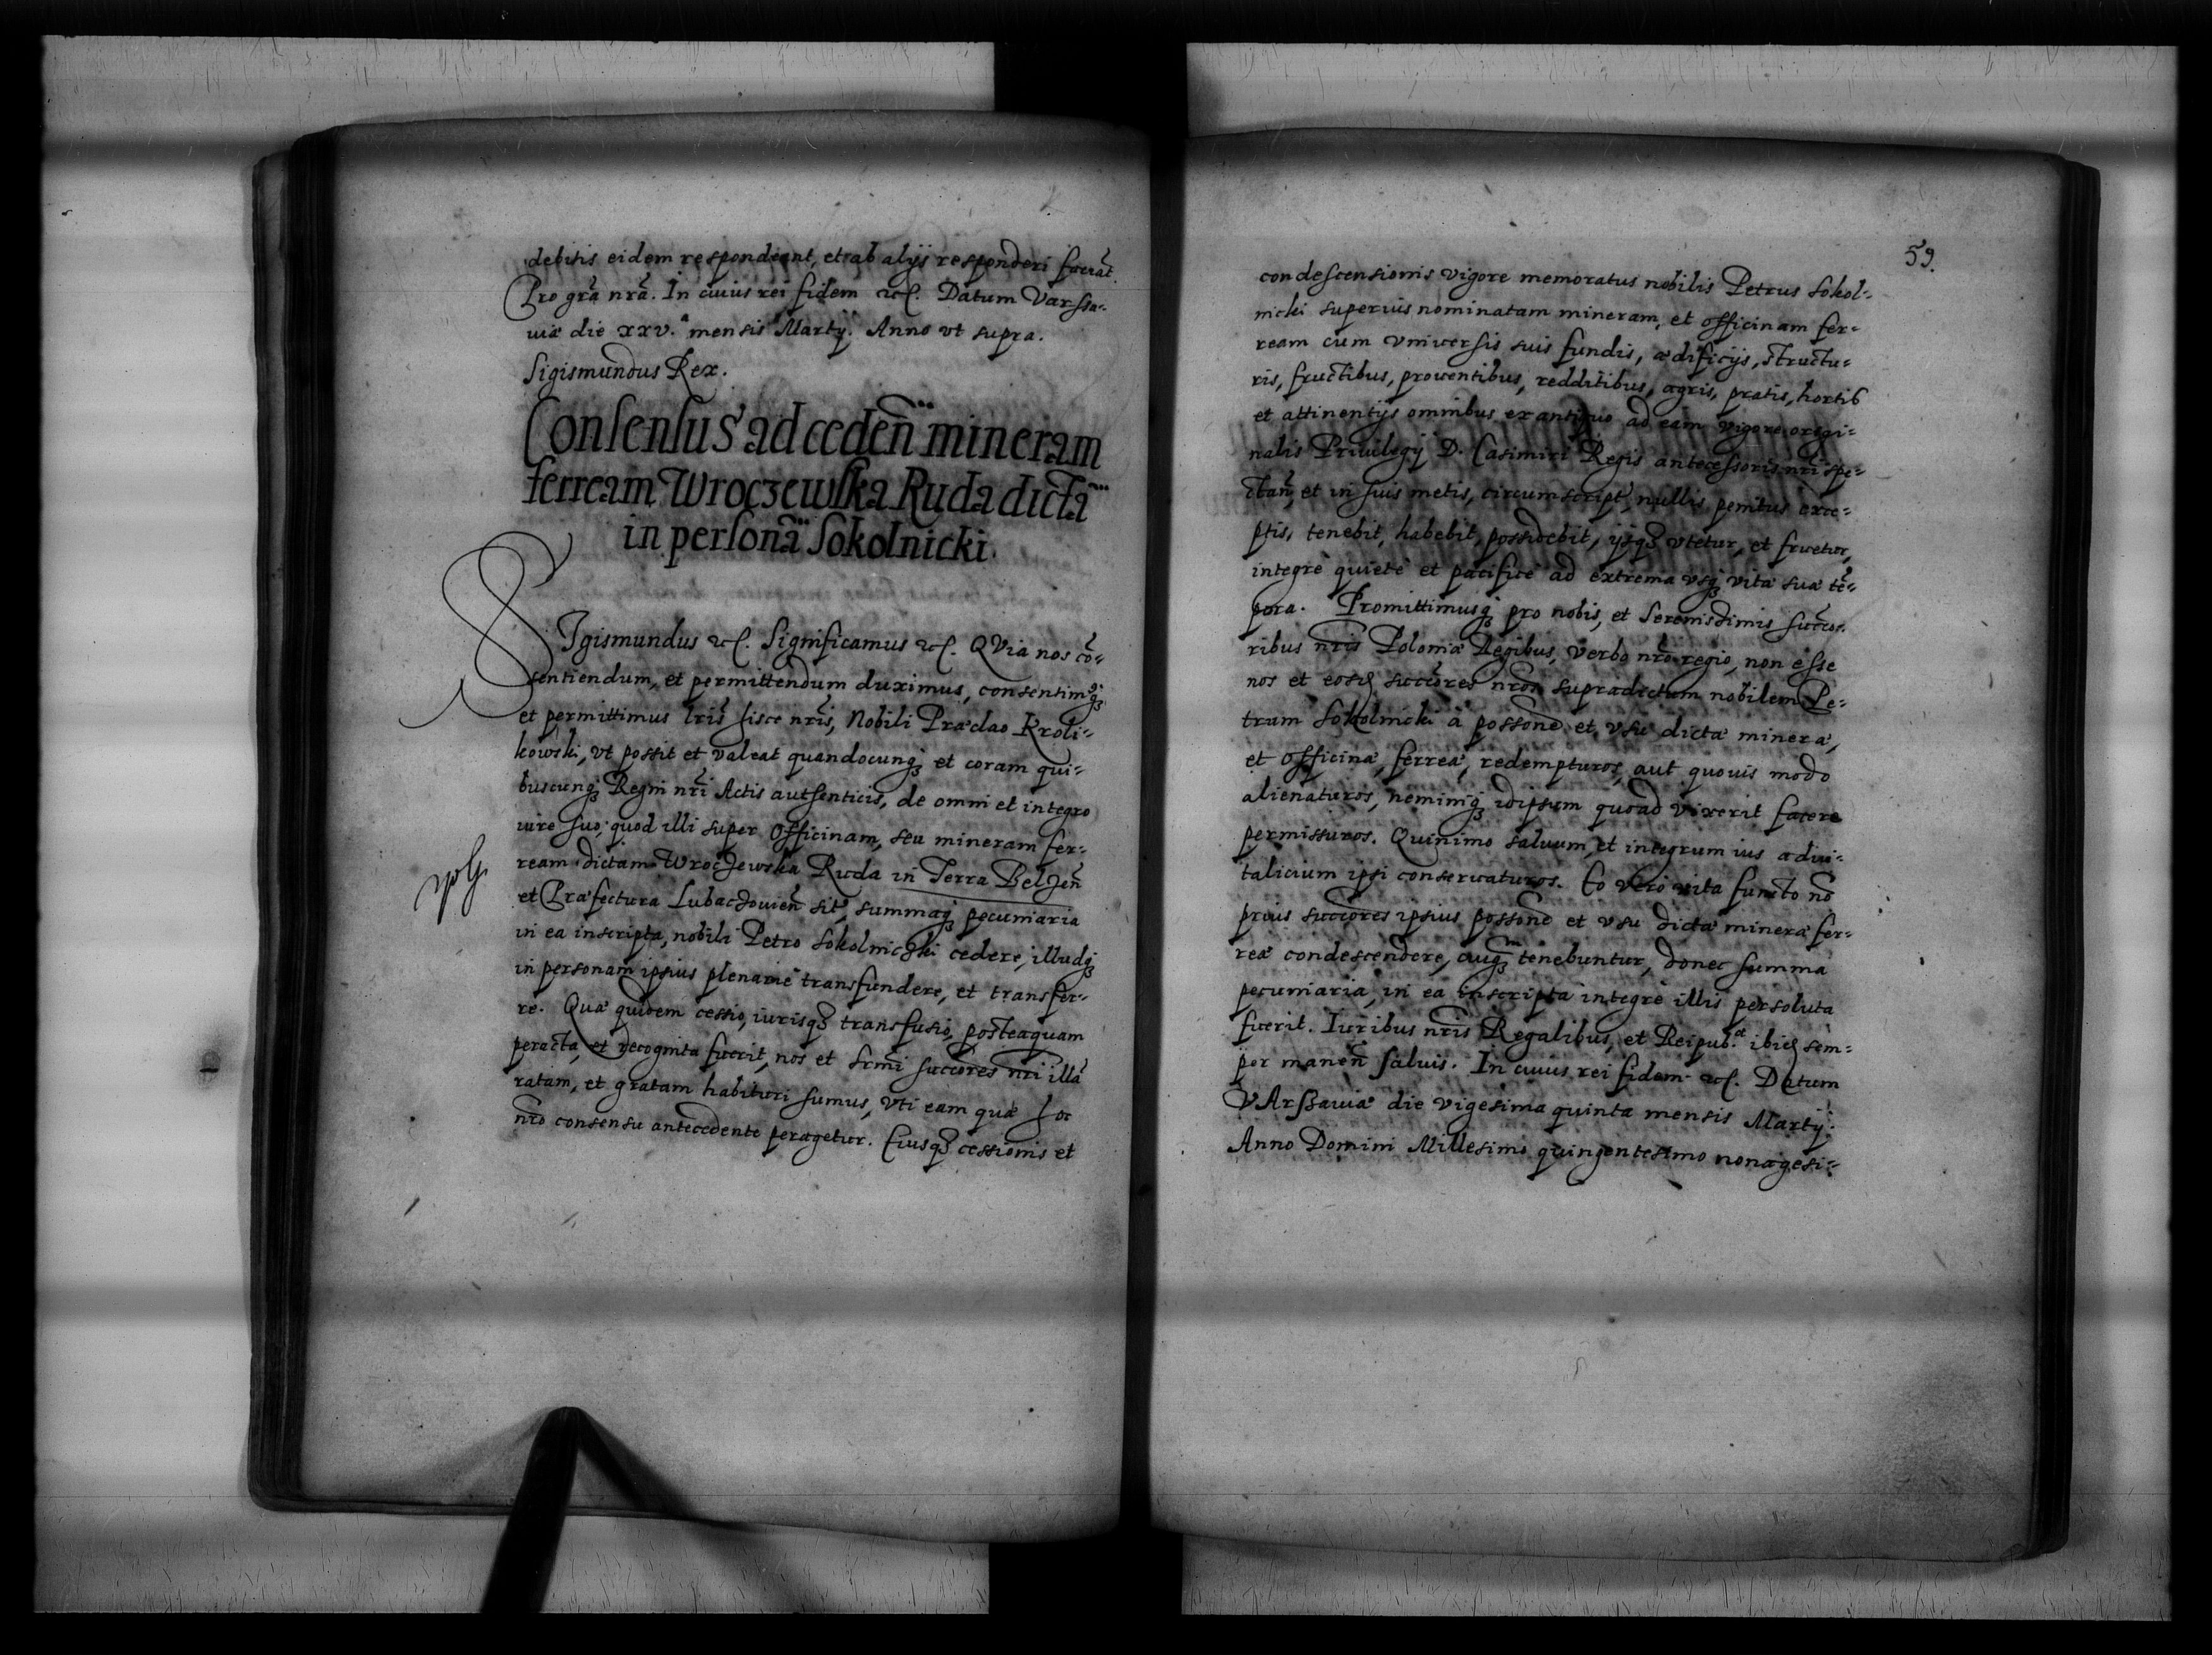 debitis eidem respondeant, et ab alijs responderi faciāt.
Pro grã nrã. In cuius rei fidem etc. Datum Varssa-
uiæ die xxv.ª mensis Martij. Anno vt supra.
Sigismundus Rex.
Consensus ad cedeñ mineram
ferream Wroczewska Ruda dictã
in personã Sokolnicki.
SIgismundus etc. Significamus etc. QVia nos cõ-
sentiendum, et permittendum duximus, consentimꝰqꝫ
et permittimus lris hisce nris, Nobili Praclao Kroli-
kowski, vt possit et valeat quandocunqꝫ et coram qui-
buscunqꝫ Regni nri Actis authenticis, de omni et integro
iure suo, quod illi super Officinam, seu mineram fer-
ream dictam Wroczewska Ruda in Terra Belzeñ
et Præfectura Lubaczouieñ sit, summaqꝫ pecuniaria
in ea inscripta, nobili Petro Sokolniczki cedere, illudqꝫ
in personam ipsius plenarie transfundere, et transfer-
re. Quæ quidem cessio, iurisqꝫ transfusio, posteaquam
peracta, et recognita fuerit, nos et Srmi succores nri illã
ratam, et gratam habituri sumus, vti eam quæ hoc
nro consensu antecedente peragetur. Eiusqꝫ cessionis et
59.
condescensionis vigore memoratus nobilis Petrus Sokol-
nicki superius nominatam mineram, et officinam fer-
ream cum vniuersis suis fundis, ædificijs, structu-
ris, fructibus, prouentibus, redditibus, agris, pratis, hortis
et attinentijs omnibus ex antiquo ad eam vigore origi-
nalis Priuilegij D. Casimiri Regis antecessoris nri spe-
ctañ, et in suis metis, circumscript, nullis penitus exce-
ptis, tenebit, habebit, possidebit, ijsqꝫ vtetur, et fruetur,
integrè quietè et pacificè ad extrema vsqꝫ vitæ suæ tẽ-
pora. Promittimusqꝫ pro nobis, et Serenissimis succes.
ribus nris Poloniæ Regibus, verbo nro regio, non esse
nos et eosd succores nros supradictum nobilem Pe-
trum Sokolnicki à possone et vsu dictæ mineræ,
et officinæ, ferreæ, redempturos, aut quouis modo
alienaturos, neminiqꝫ idipsum quoad vixerit facere
permissuros. Quinimo saluum, et integrum ius adui-
talicium ipsi conseruaturos. Eo verò vita functo nõ
prius succores ipsius possone et vsu dictæ mineræ fer-
reæ condescendere, cuiqꝫ tenebuntur, donec summa
pecuniaria, in ea inscripta integrè illis persoluta
fuerit. Iuribus nris Regalibus, et Reipub.æ ibid sem-
per maneñ saluis. In cuius rei fidem etc. Datum
VArßauiæ die vigesima quinta mensis Martij.
Anno Domini Millesimo quingentesimo nonagesi-